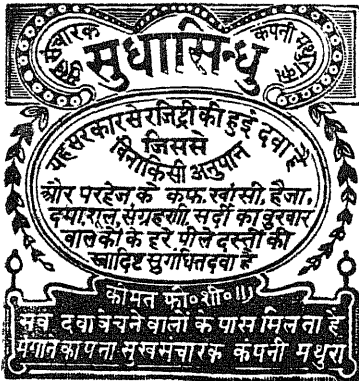 सुख संचारक
कंपनी मथुरा का
सुधासिन्धु
यह सरकारसे रजिट्री की हुई दवा है
जिससे
बिनाकिसी अनुपान
और परहेज के कफ, खांसी, हैजा,
दमा, शूल, संग्रहणी, सर्दी का बुरवार
बालकों के हरे, पीले दस्तों की
स्वादिष्ट सुगंधित दवा है
कीमत फी० शी० ॥)
सब दवा बेचने वालों के पास मिलता है
मंगाने का पता सुखसंचारक कंपनी मथुरा